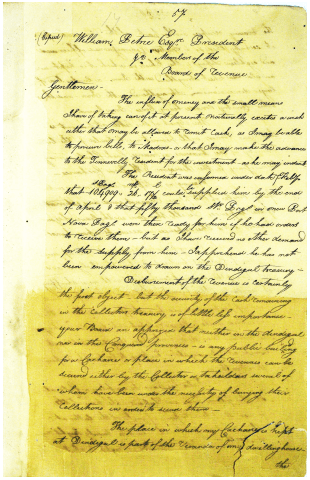 57
(Copied) William Petrie Esqr. President
& Members of the
Board of Revenue
Gentlemen
The influx of money and the small means
I have of taking care of it at present naturally excites a wish
either that I may be allowed to remit cash, as I may be able
to procure bills, to Madras or that I may make the advance
to the Tinnevelly Resident for the investment as he may indent
The Resident was informed under date
that could be supplied him by the end
of April & that fifty thousand in new Port
Novo Pags. were then ready for him if he had orders
to receive them - but as I have received no other demand
for this supply from him - I apprehend he has not
been empowered to draw on the Dindegul treasury -
Disbursement of the revenue is certainly
the first object - but the security of the cash remaining
in the Collectors treasury is of little less importance -
your Board is apprized that neither in the Dindegul
nor in the provinces - is any public building
for a Cacharee or place in which the revenues can be
secured either by the Collector or several of
whom have been under the necessity of burying their
Collections in order to secure them -
The place in which my Cacharee is kept
at Dindegul is part of the Veranda of my dwelling house
the